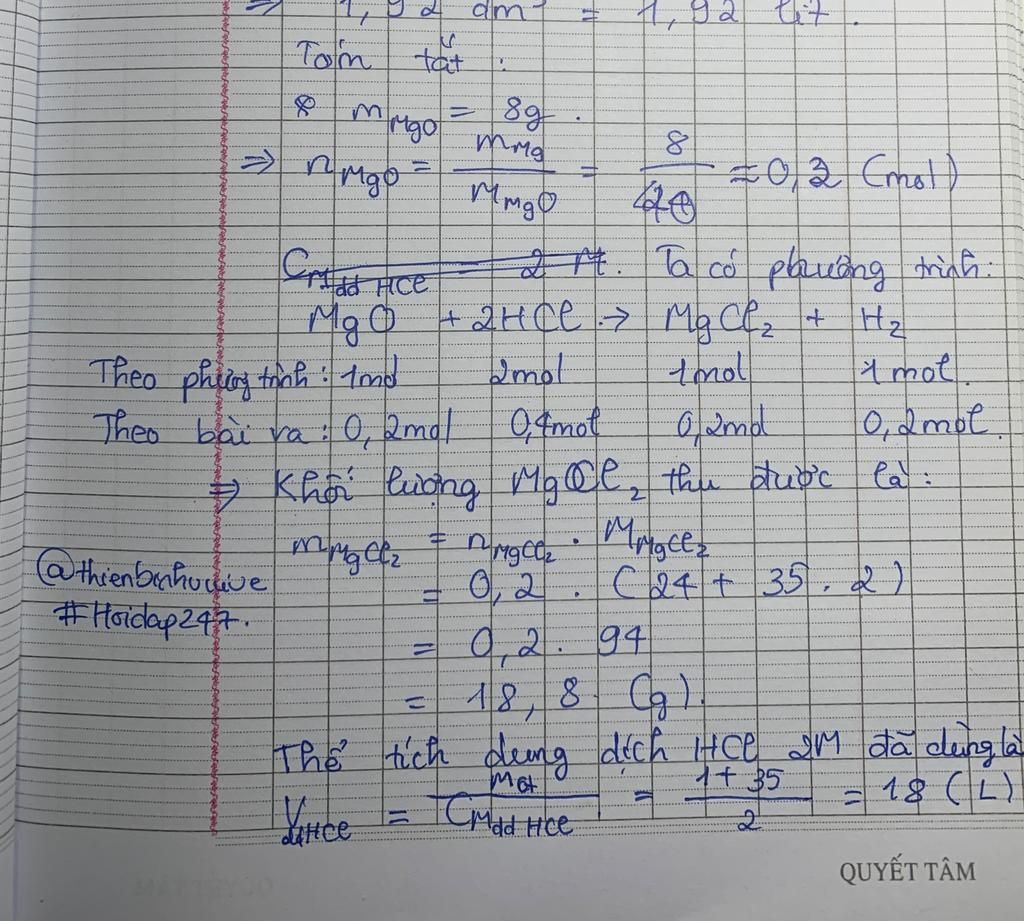 ⇒ 1,92 dm³ = 1,92 lít.
Toán tắt:
* m_MgO = 8g.
⇒ n_MgO = m_Mg / M_MgO = 8 / 40 = 0,2 (mol)
C_M dd HCl = 2 M. Ta có phương trình:
MgO + 2HCl → MgCl₂ + H₂
Theo phương trình: 1mol 2mol 1mol 1mol.
Theo bài ra: 0,2mol 0,4mol 0,2mol 0,2mol.
⇒ Khối lượng MgCl₂ thu được là:
m_MgCl₂ = n_MgCl₂ . M_MgCl₂
@thienbinhuuive
= 0,2 . (24 + 35 . 2)
#Hoidap247.
= 0,2 . 94
= 18,8 (g).
Thể tích dung dịch HCl 2M đã dùng là
V_ddHCl = m_ct / C_M dd HCl = 1 + 35 / 2 = 18 (L)
QUYẾT TÂM